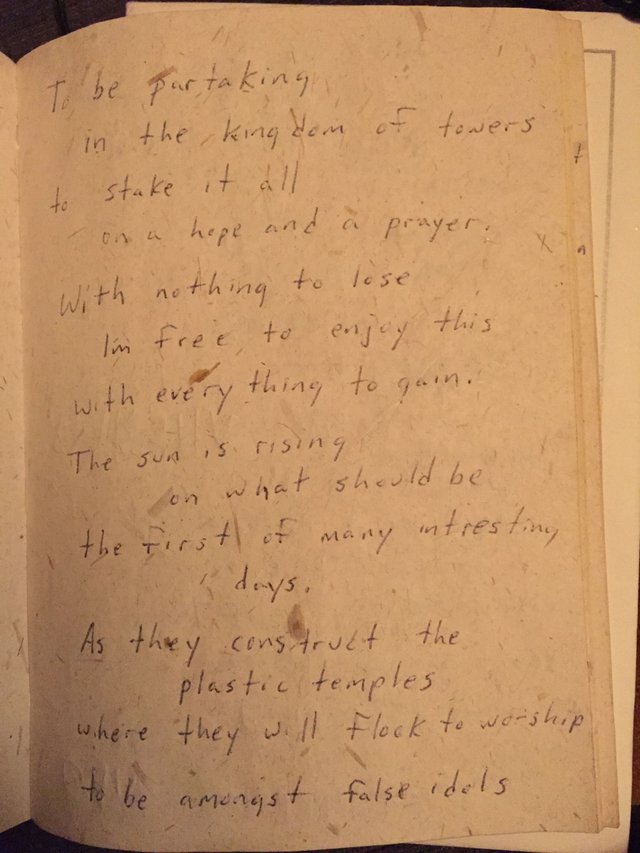 To be partaking
in the kingdom of towers
to stake it all
on a hope and a prayer.
With nothing to lose
I'm free to enjoy this
with everything to gain.
The sun is rising
on what should be
the first of many intresting
days.
As they construct the
plastic temples
where they will flock to worship
to be amongst false idols